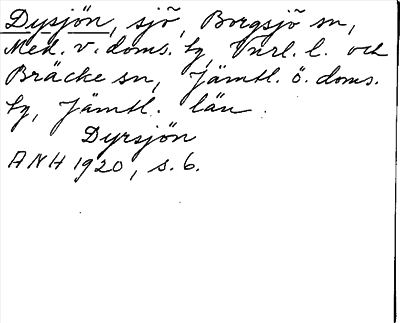 Dysjön, sjö, Borgsjö sn,
Med. v. doms. sg, Vnrl. l. och
Bräcke sn, Jämtl. ö. doms.
sg, Jämtl. län.
Dyrsjön
ANH 1920, s. 6.